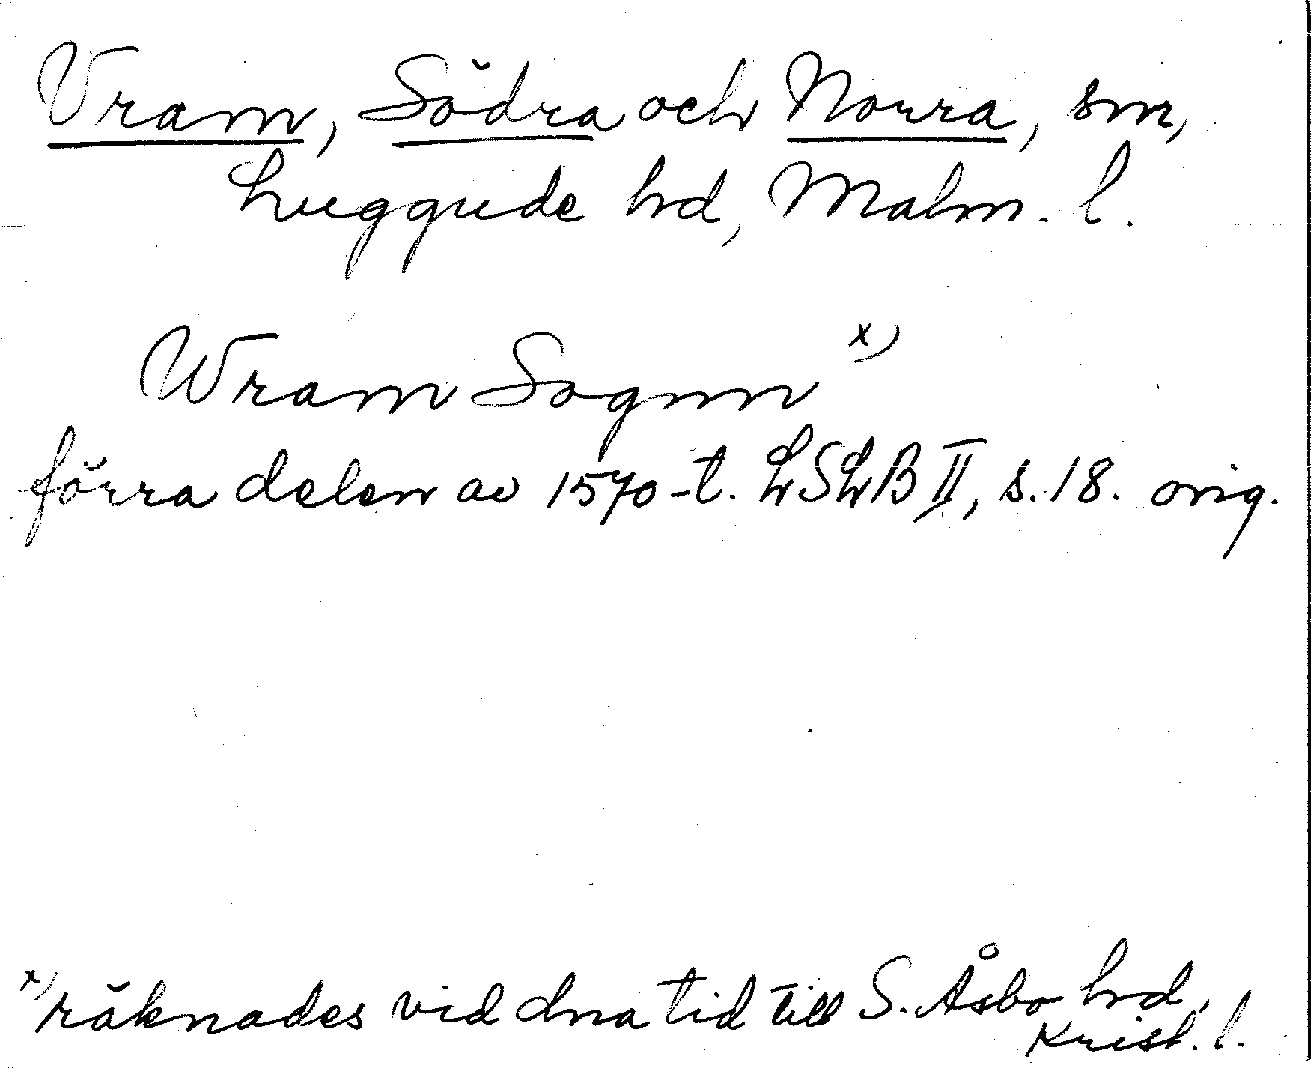 Vram, Södra och Norra, snr,
Luggude hd, Malm. l.
Wram Sognn x)
förra delen av 1570-t. LSLB II, s. 18. orig.
x) räknades vid dna tid till S. Åsbo hd,
Krist. l.